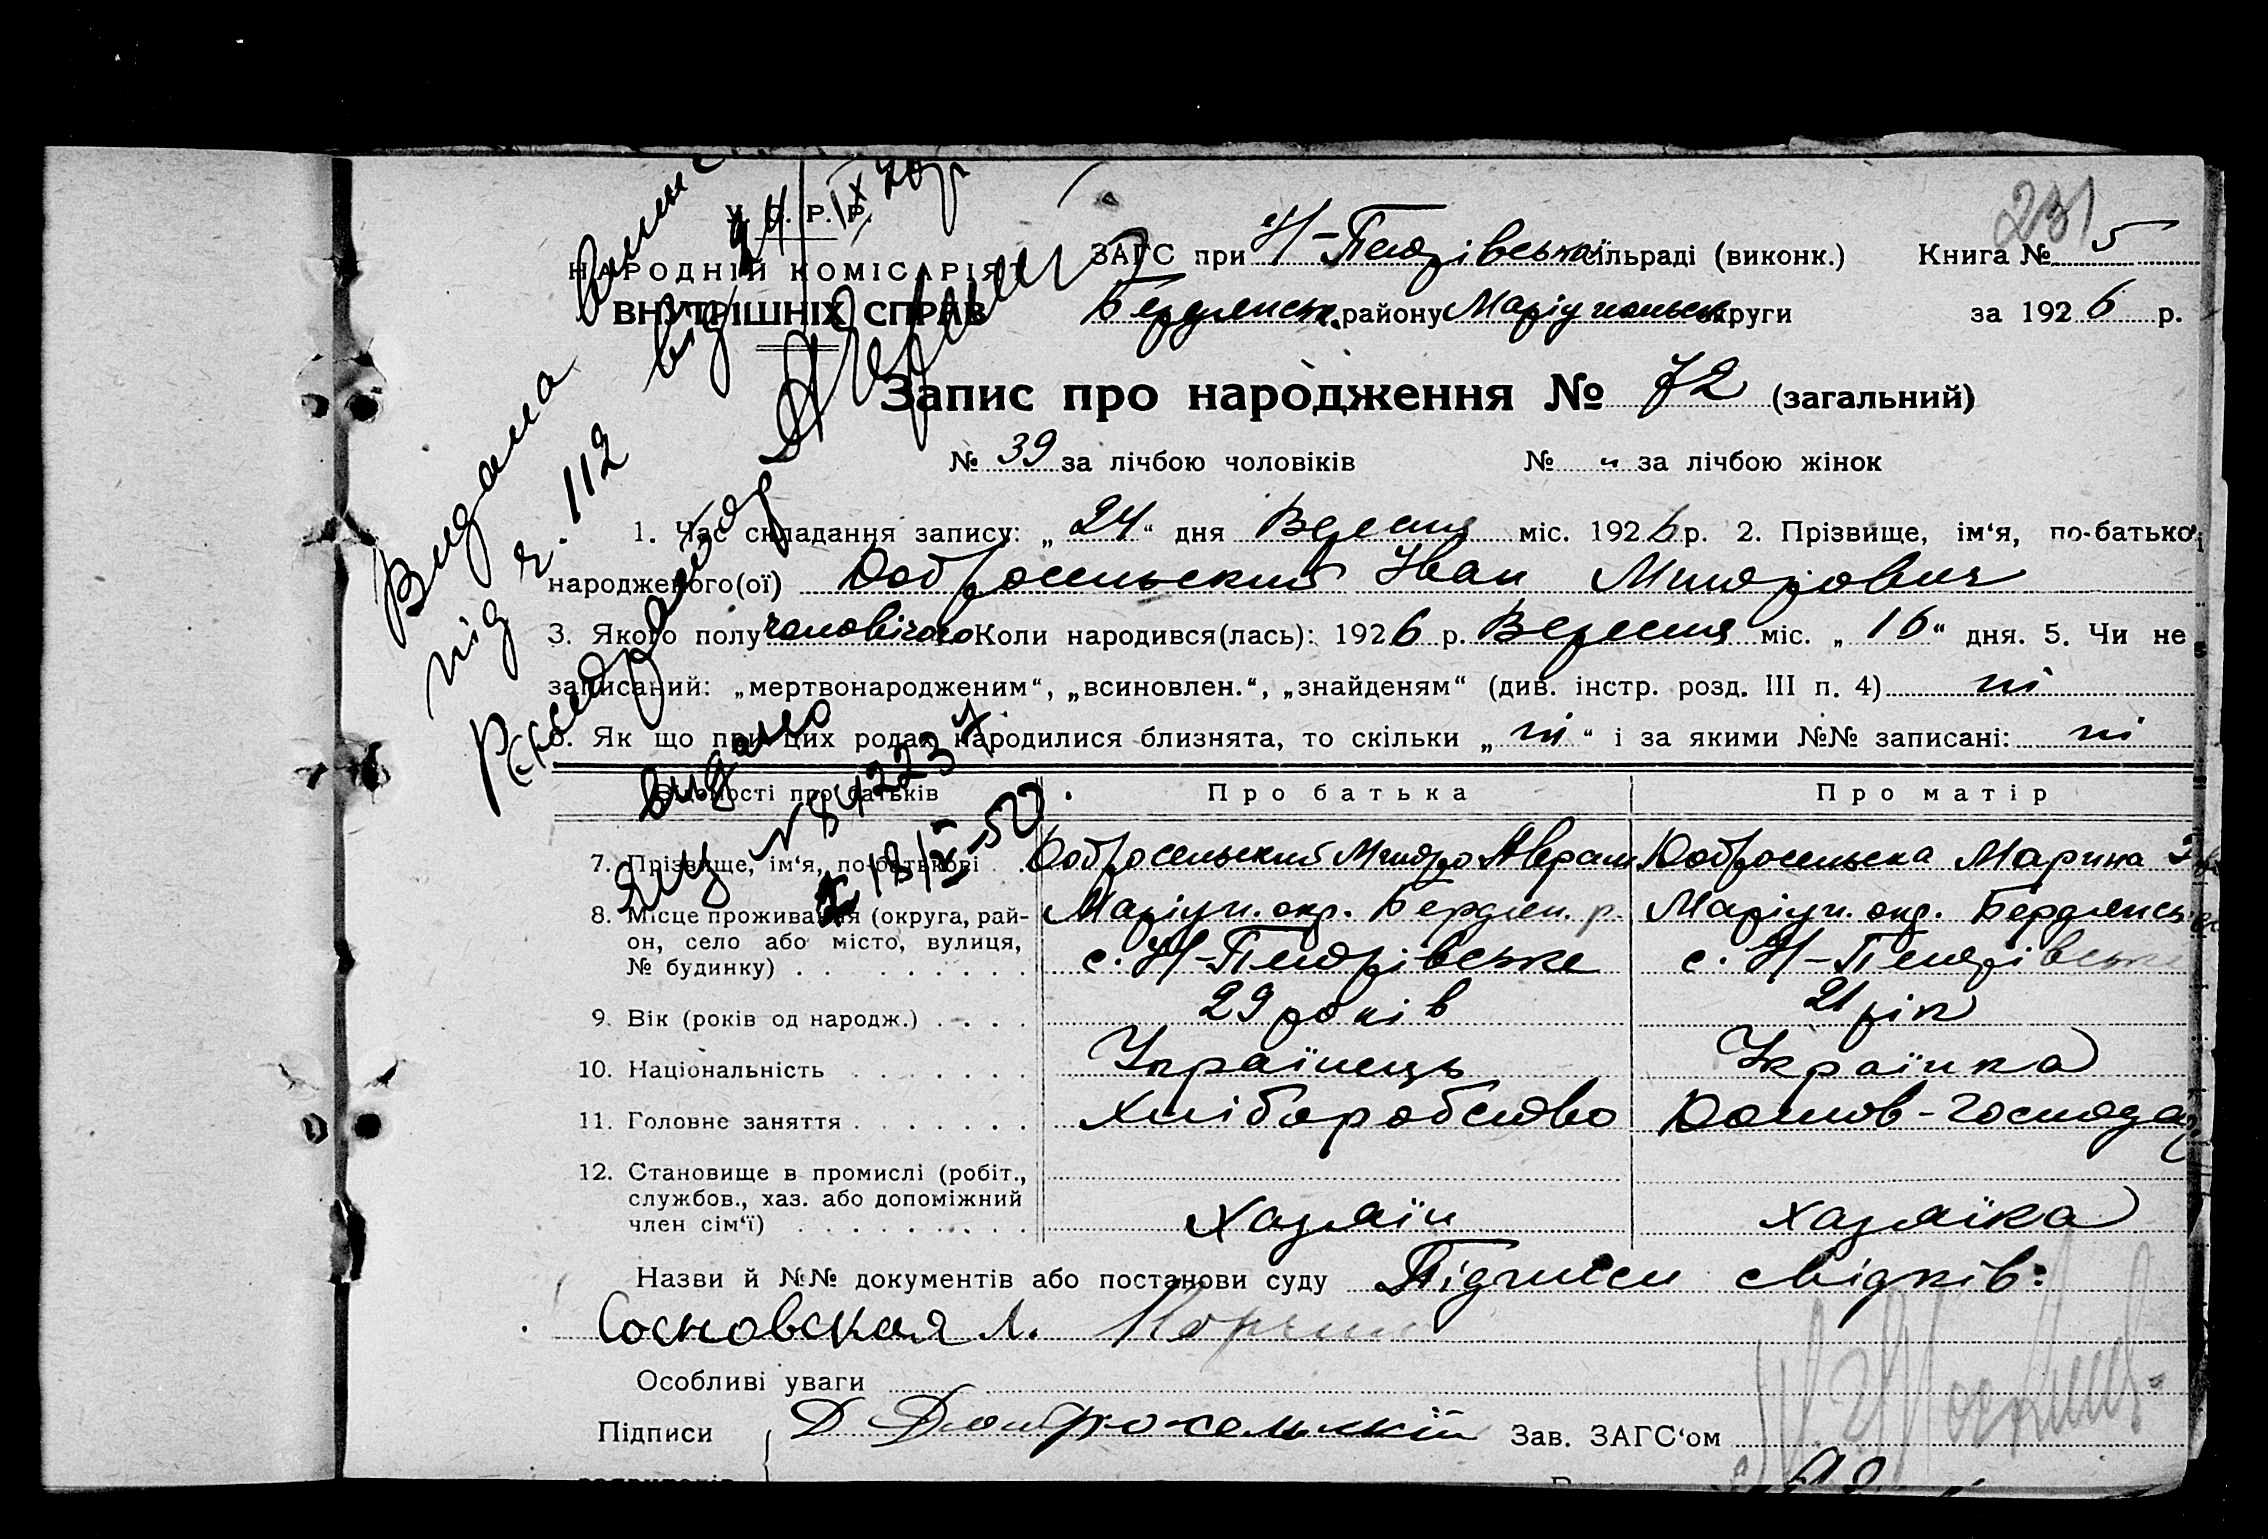 231
У. С. Р. Р.
НАРОДНІЙ КОМІСАРІЯТ
ВНУТРІШНІХ СПРАВ
ЗАГС при Н-Петрівській сільраді (виконк.) Книга № 5
Бердянськ. району Маріупольськ. округи за 1926 р.
Запис про народження № 72 (загальний)
№ 39 за лічбою чоловіків № " за лічбою жінок
1. Час складання запису: „24“ дня Вересня міс. 1926 р. 2. Прізвище, ім‘я, по-батькові
народженого(ої) Добросельский Іван Митрович
3. Якого полу чоловічого Коли народився(лась): 1926 р. Вересня міс. „16“ дня. 5. Чи не
записаний: „мертвонародженим“, „всиновлен.“, „знайденям“ (див. інстр. розд. III п. 4) ні
6. Як що при цих родах народилися близнята, то скільки „ні“ і за якими №№ записані: ні
Видана
під ч. 112 від 24/IX 26 р
Видано
ЯШ № 842237
18/X-50
Відомості про батьків Про батька Про матір
7. Прізвище, ім‘я, по-батькові Добросельский Митро Аврам Добросельска Марина
8. Місце проживання (округа, рай- Маріуп. окр. Бердян. р. Маріуп. окр. Бердянськ
он, село або місто, вулиця, с. Н-Петрівське с. Н-Петрівське
№ будинку)
9. Вік (років од народж.) 29 років 21 рік
10. Національність Українець Українка
11. Головне заняття Хліборобство Домов-господар
12. Становище в промислі (робіт.,
службов., хаз. або допоміжний
член сім‘ї) Хазяїн хазяїка
Назви й №№ документів або постанови суду Підписи свідків:
Сосновская Л.
Особливі уваги
Підписи Д Добросельский Зав. ЗАГС‘ом